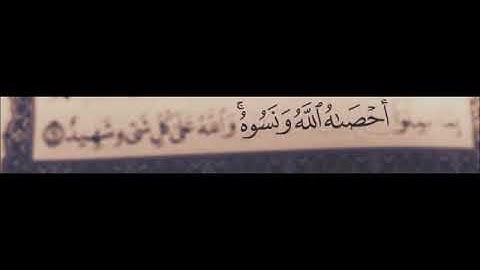 أَحۡصَىٰهُ ٱللَّهُ وَنَسُوهُۚ وَٱللَّهُ عَلَىٰ كُلِّ شَىۡءٍ شَهِيدٌ